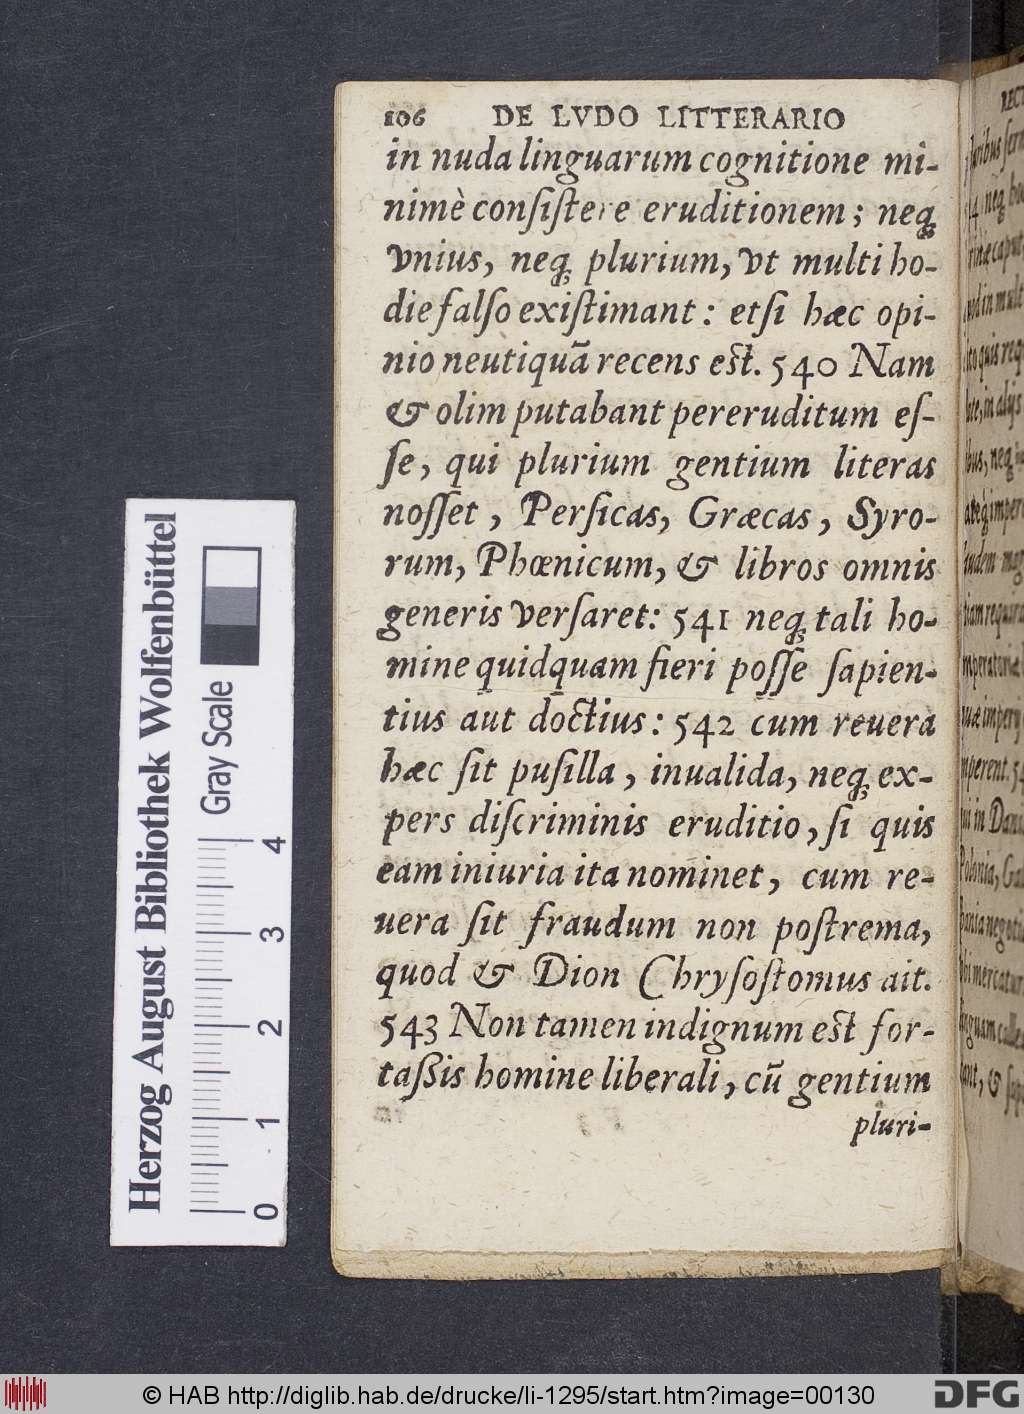 106 DE LVDO LITTERARIO
in nuda linguarum cognitione mi-
nimè conſiſtere eruditionem; neq;
vnius, neq; plurium, vt multi ho-
die falſo exiſtimant: etſi hæc opi-
nio neutiquā recens eſt. 540 Nam
& olim putabant pereruditum eſ-
ſe, qui plurium gentium literas
noſſet, Perſicas, Græcas, Syro-
rum, Phœnicum, & libros omnis
generis verſaret: 541 neq; tali ho-
mine quidquam fieri poſſe ſapien-
tius aut doctius: 542 cum reuera
hæc ſit puſilla, inualida, neq; ex-
pers diſcriminis eruditio, ſi quis
eam iniuria ita nominet, cum re-
uera ſit fraudum non poſtrema,
quod & Dion Chryſoſtomus ait.
543 Non tamen indignum eſt for-
taßis homine liberali, cū gentium
pluri-
Herzog August Bibliothek Wolfenbüttel
Gray Scale
0 1 2 3 4
© HAB http://diglib.hab.de/drucke/li-1295/start.htm?image=00130
DFG